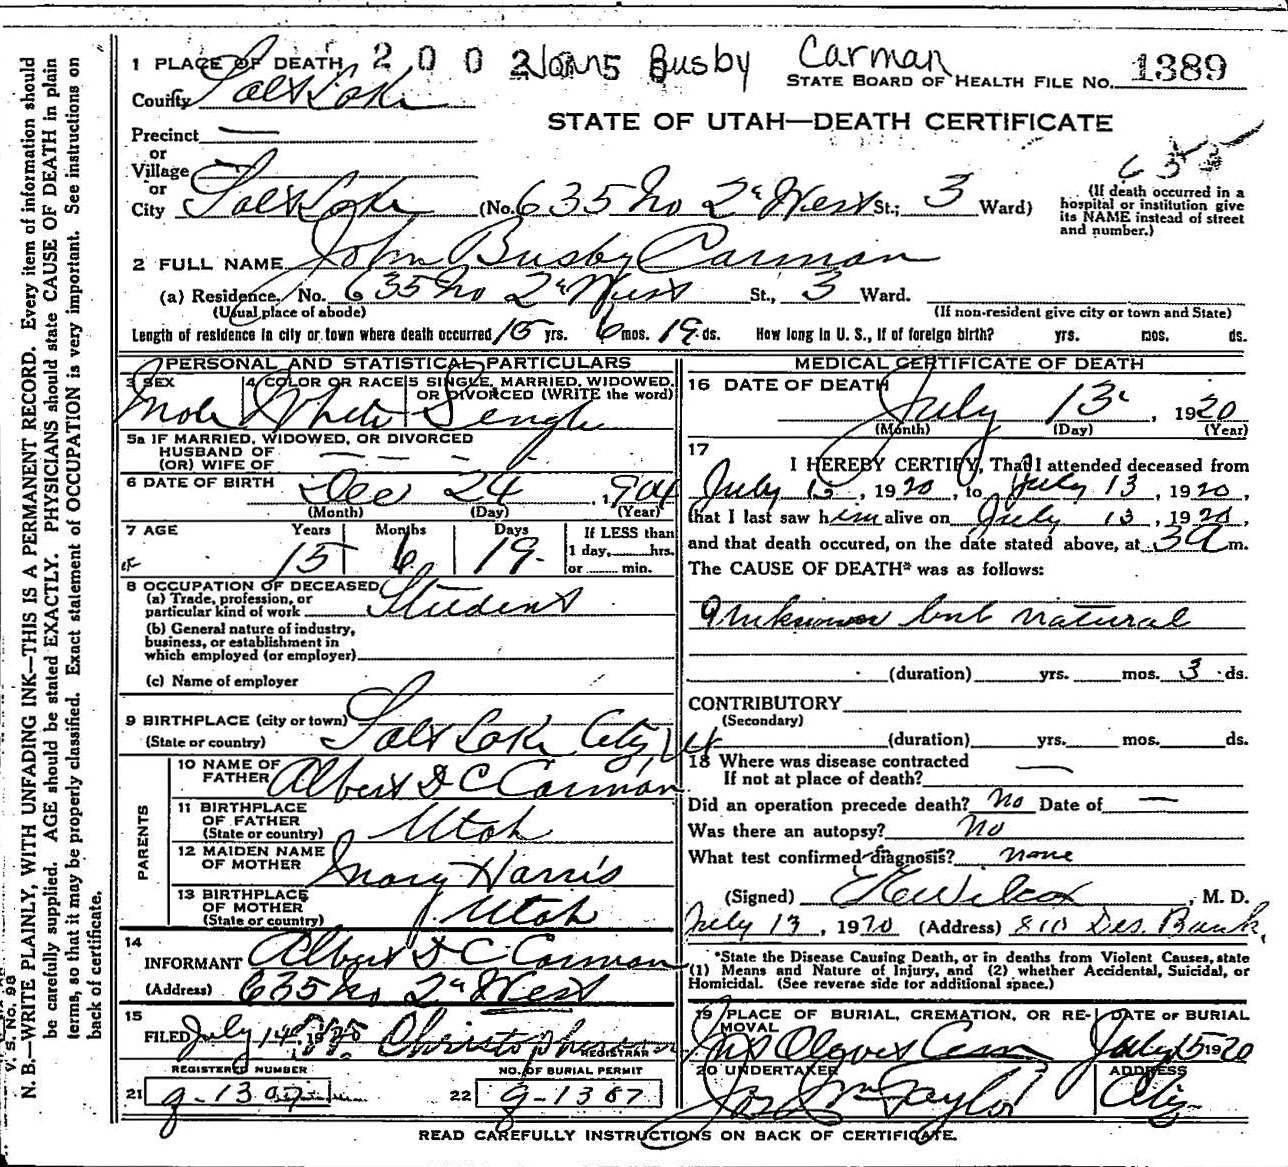 N. B.—WRITE PLAINLY, WITH UNFADING INK—THIS IS A PERMANENT RECORD. Every item of information should
be carefully supplied. AGE should be stated EXACTLY. PHYSICIANS should state CAUSE OF DEATH in plain
terms, so that it may be properly classified. Exact statement of OCCUPATION is very important. See instructions on
back of certificate.
V. S. No. 98
2 0 0 2 Busby Carman
1 PLACE OF DEATH
STATE BOARD OF HEALTH FILE NO. 1389
County Salt Lake
STATE OF UTAH—DEATH CERTIFICATE
Precinct —
or
Village —
or
City Salt Lake (No. 635 No 2d West St.; 3 Ward)
635
(If death occurred in a
hospital or institution give
its NAME instead of street
and number.)
2 FULL NAME John Busby Carman
(a) Residence. No. 635 No 2d West St., 3 Ward.
(Usual place of abode) (If non-resident give city or town and State)
Length of residence in city or town where death occurred 15 yrs. 6 mos. 19 ds. How long in U. S., if of foreign birth? yrs. mos. ds.
PERSONAL AND STATISTICAL PARTICULARS
3 SEX Male
4 COLOR OR RACE White
5 SINGLE, MARRIED, WIDOWED, OR DIVORCED (WRITE the word) Single
5a IF MARRIED, WIDOWED, OR DIVORCED
HUSBAND OF
(OR) WIFE OF — — — —
6 DATE OF BIRTH Dec 24, 1904
(Month) (Day) (Year)
7 AGE Years 15 Months 6 Days 19
If LESS than
1 day, hrs.
or min.
8 OCCUPATION OF DECEASED
(a) Trade, profession, or
particular kind of work Student
(b) General nature of industry,
business, or establishment in
which employed (or employer)
(c) Name of employer
9 BIRTHPLACE (city or town)
(State or country) Salt Lake City, Ut
PARENTS
10 NAME OF
FATHER Albert D C Carman
11 BIRTHPLACE
OF FATHER
(State or country) Utah
12 MAIDEN NAME
OF MOTHER Mary Harris
13 BIRTHPLACE
OF MOTHER
(State or country) Utah
14
INFORMANT Albert D C Carman
(Address) 635 No 2d West
15
FILED July 14 Christophersen
REGISTRAR
REGISTERED NUMBER
NO. OF BURIAL PERMIT
21
22 g-1387
MEDICAL CERTIFICATE OF DEATH
16 DATE OF DEATH
July 13, 1920
(Month) (Day) (Year)
17
I HEREBY CERTIFY, That I attended deceased from
July 12, 1920, to July 13, 1920,
that I last saw him alive on July 13, 1920,
and that death occured, on the date stated above, at 3 a m.
The CAUSE OF DEATH* was as follows:
Unknown but natural
(duration) yrs. mos. 3 ds.
CONTRIBUTORY
(Secondary)
(duration) yrs. mos. ds.
18 Where was disease contracted
If not at place of death? —
Did an operation precede death? No Date of —
Was there an autopsy? No
What test confirmed diagnosis? none
(Signed) Wilcox, M. D.
July 13, 1920 (Address) 810 Des. Bank.
*State the Disease Causing Death, or in deaths from Violent Causes, state
(1) Means and Nature of Injury, and (2) whether Accidental, Suicidal, or
Homicidal. (See reverse side for additional space.)
19 PLACE OF BURIAL, CREMATION, OR RE-
MOVAL
DATE OF BURIAL
July 15 1920
20 UNDERTAKER
ADDRESS
Jos Wm Taylor City
READ CAREFULLY INSTRUCTIONS ON BACK OF CERTIFICATE.